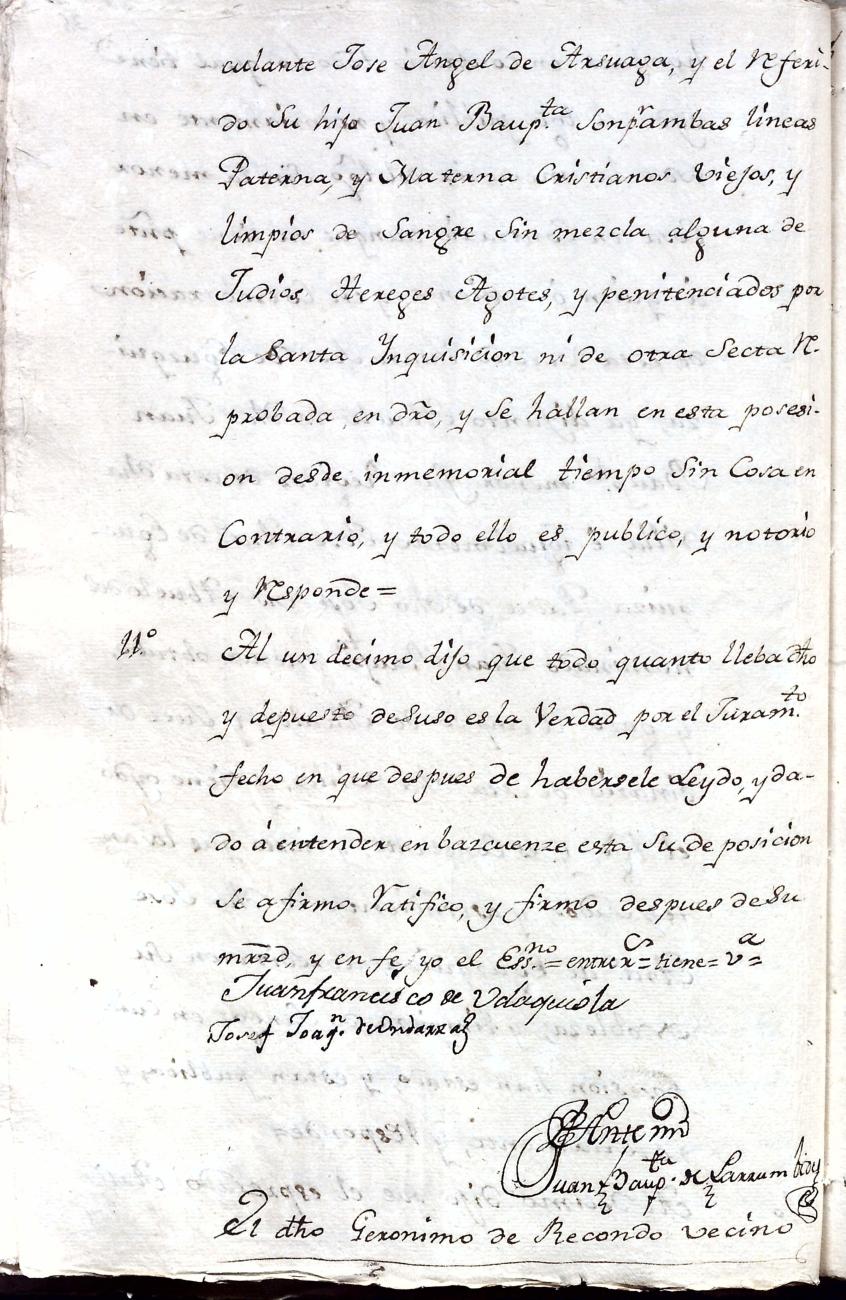 culante Jose Angel de Arsuaga, y el Referi-
do Su hijo Juan Baup.ta Son pr ambas lineas
Paterna, y Materna Cristianos Viejos, y
limpios de Sangre Sin mezcla alguna de
Judios Hereges Agotes, y penitenciados por
la Santa Ynquisicion ni de otra Secta Re-
probada en dro, y Se hallan en esta posesi-
on desde inmemorial tiempo Sin Cosa en
Contrario, y todo ello es publico, y notorio
y Responde=
11.º Al un decimo dijo que todo quanto lleba dho
y depuesto desuso es la Verdad por el Juram.to
fecho en que despues de habersele Leydo, y da-
do á entender en bazcuenze esta Su deposicion
Se afirmo Ratifico, y firmo despues de Su
mrzd, y en fe yo el Ess.no = entre r.s = tiene = v.a =
Juan francisco de Udaquiola
Josef Joaq.n de Undarra
Ante mi
Juan Baup.ta de Larrumbide
El dho Geronimo de Recondo vecino